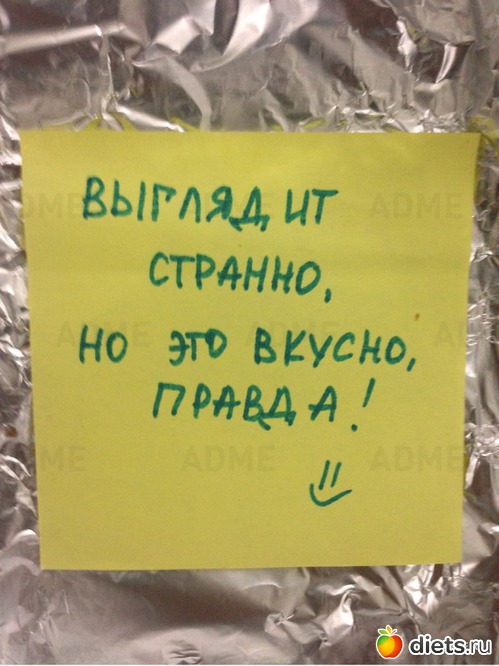 ВЫГЛЯДИТ
СТРАННО,
НО ЭТО ВКУСНО,
ПРАВДА!
ADME
ADME
ADME
ADME
diets.ru